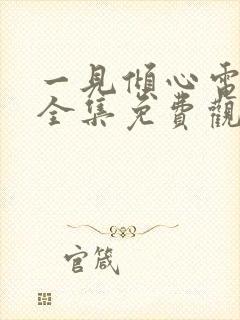 一見傾心電
全集免費觀
官箴